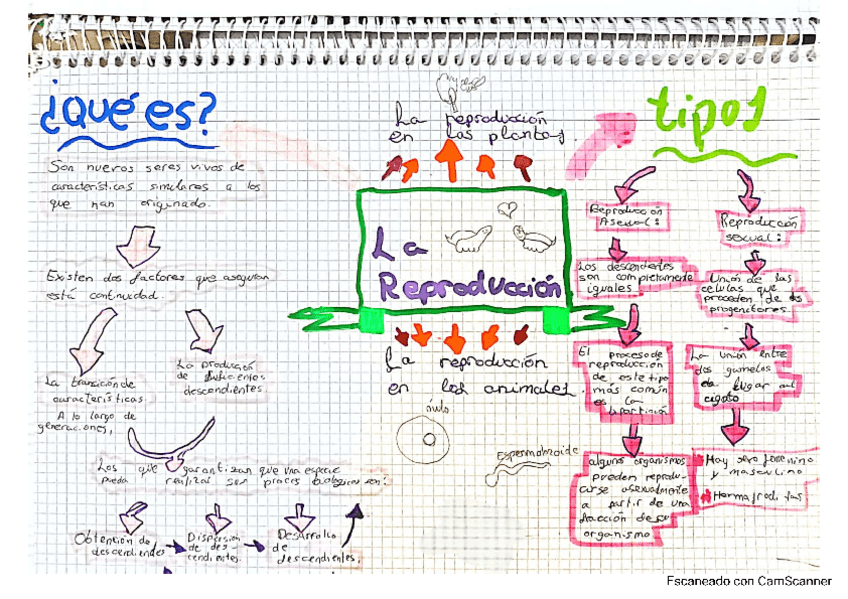 ¿qué es?
Son nuevos seres vivos de
características similares a los
que han originado.
Existen dos factores que aseguran
está continuidad.
La transición de
características.
A lo largo de
generaciones,
La producción
de suficientes
descendientes
Los que garantizan que una especie
pueda realizar sus proces biologicos son:
Obtención de
descendientes
Dispersión
de des-
cendientes.
Desarrollo
de
descendientes,
La reproducción
en las plantas.
La
Reproducción
La reproducción
en los animales.
óulo
Espermatozoide
tipos
Reproducción
Asexual:
Los descendientes
son completamente
iguales
El proceso de
reproducción
de este tipo
más común
es la
bipartición
algunos organismos
pueden reprodu-
cirse asexualmente
a partir de una
fracción de su
organismo
Reproducción
sexual:
Unión de las
celulas que
proceden de
progenitores
La unión entre
dos gametos
da lugar al
cigoto
Hay sexo femenino
y masculino
Hermafroditas
Escaneado con CamScanner